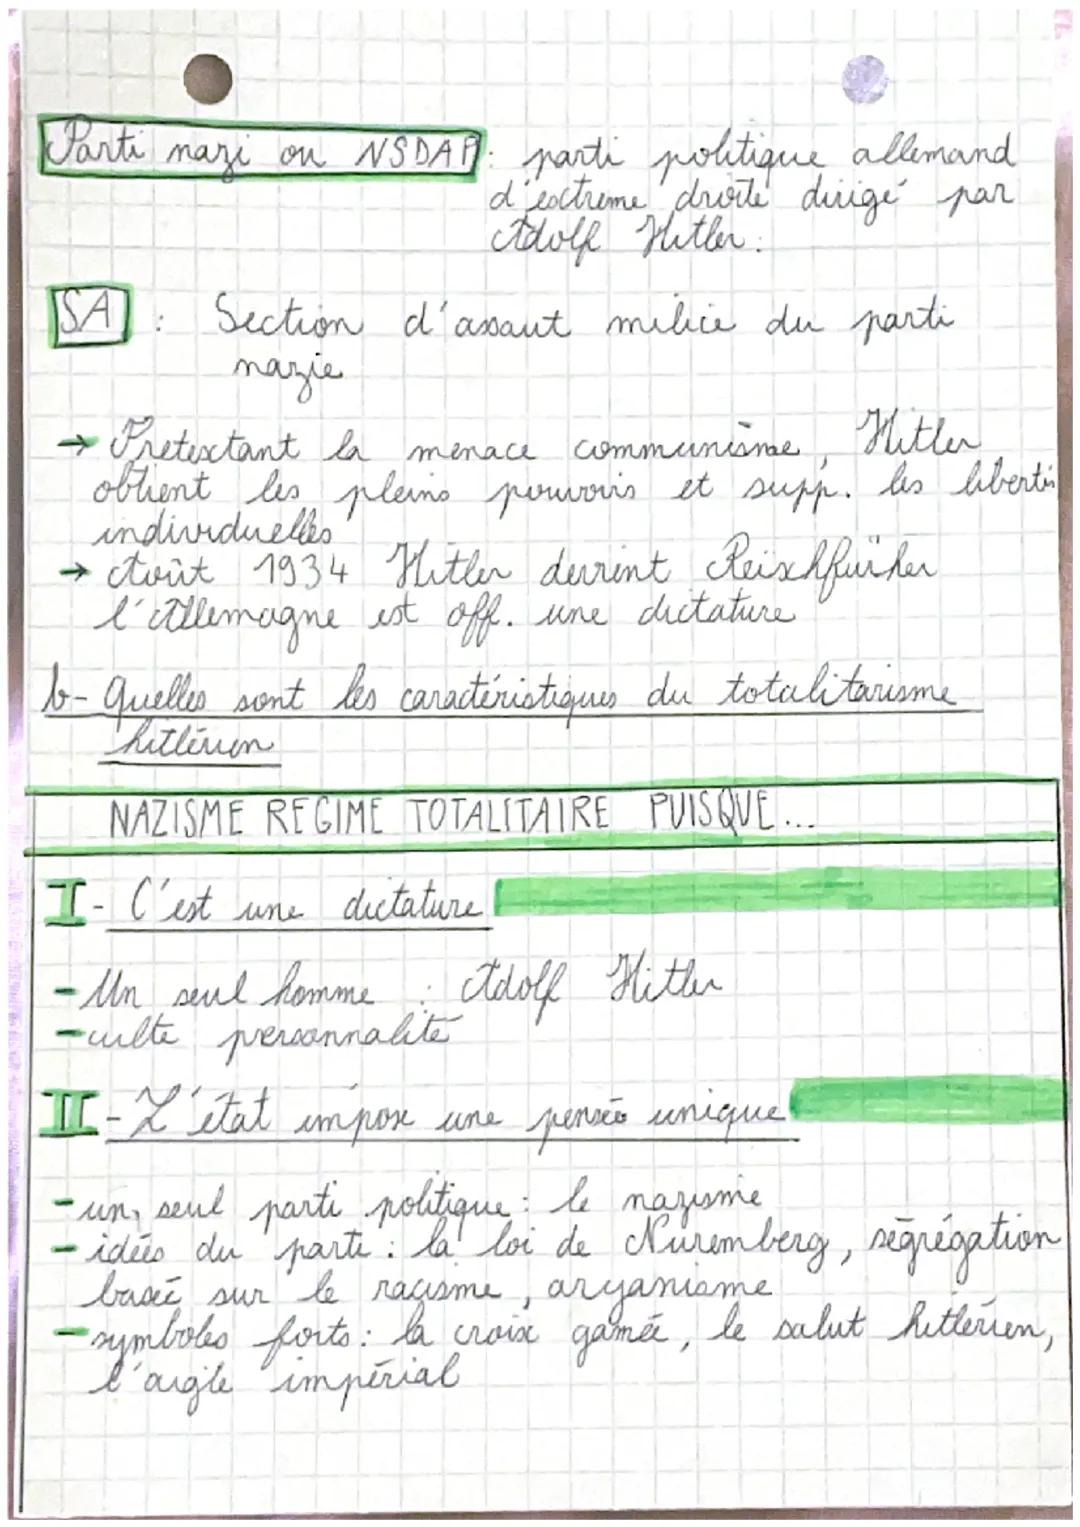 Parti nazi ou NSDAP : parti politique allemand
d'extreme droite dirigé par
Adolf Hitler.
SA : Section d'assaut milice du parti
nazie
→ Pretextant la menace communisme, Hitler
obtient les pleins pouvoirs et supp. les libertés
individuelles
→ Août 1934 Hitler devient Reischfürher
l'Allemagne est off. une dictature
b- Quelles sont les caractéristiques du totalitarisme
hitlérien
NAZISME REGIME TOTALITAIRE PUISQUE...
I- C'est une dictature
- Un seul homme : Adolf Hitler
- culte personnalité
II- L'état impose une pensée unique
- un seul parti politique : le nazisme
- idées du parti : la loi de Nuremberg, ségrégation
basée sur le racisme, aryanisme
- symboles forts : la croix gamée, le salut hitlérien,
l'aigle impérial